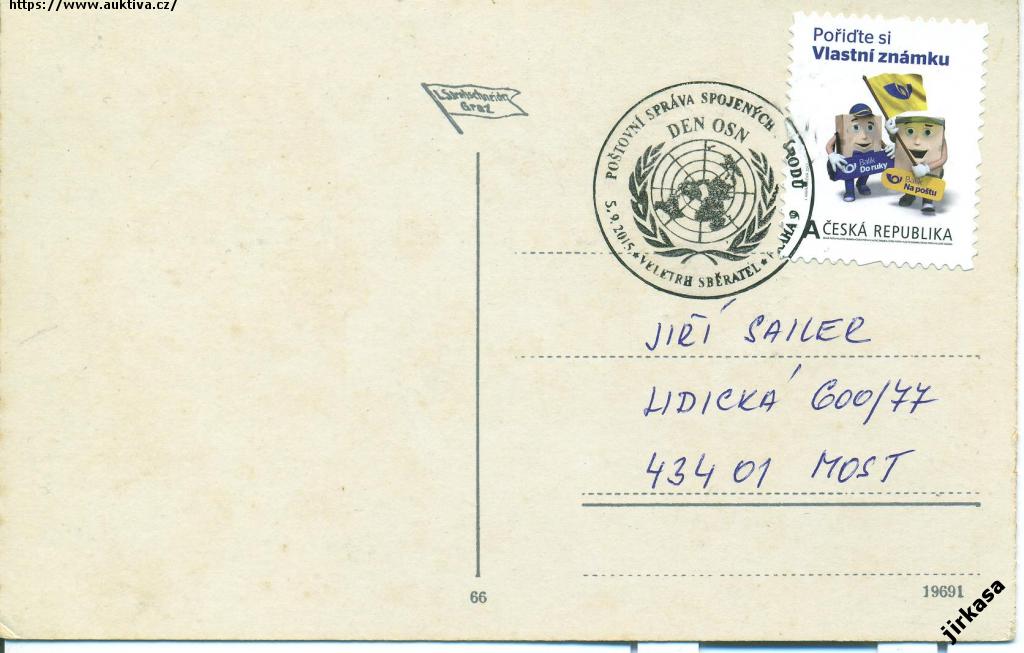 https://www.auktiva.cz/
Pořiďte si
Vlastní známku
Balík
Do ruky
Balík
Na poštu
A ČESKÁ REPUBLIKA
Graz
POŠTOVNÍ SPRÁVA SPOJENÝCH
DEN OSN
5.9.2015 * VELETRH SBĚRATEL *
JIŘÍ SAILER
LIDICKÁ 600/77
434 01 MOST
66
19691
jirkasa